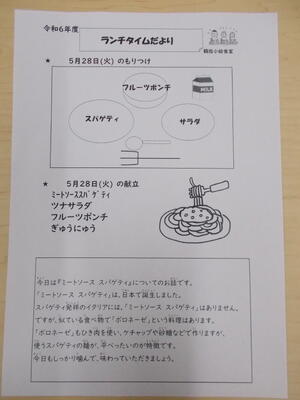 令和6年度
ランチタイムだより
鶴指小給食室
★ 5月28日(火) のもりつけ
フルーツポンチ
MILK
スパゲティ
サラダ
★ 5月28日(火) の献立
ﾐｰﾄｿｰｽｽﾊﾟｹﾞﾃｨ
ツナサラダ
フルーツポンチ
ぎゅうにゅう
今日は『ミートソース スパゲティ』についてのお話です。
「ミートソース スパゲティ」は、日本で誕生しました。
スパゲティ発祥のイタリアには、「ミートソース スパゲティ」はありません。
ですが、似ている食べ物で「ボロネーゼ」という料理はあります。
「ボロネーゼ」もひき肉を使い、ケチャップや砂糖などで作りますが、
使うスパゲティの麺が、平べったいのが特徴です。
今日もしっかり噛んで、味わっていただきましょう。